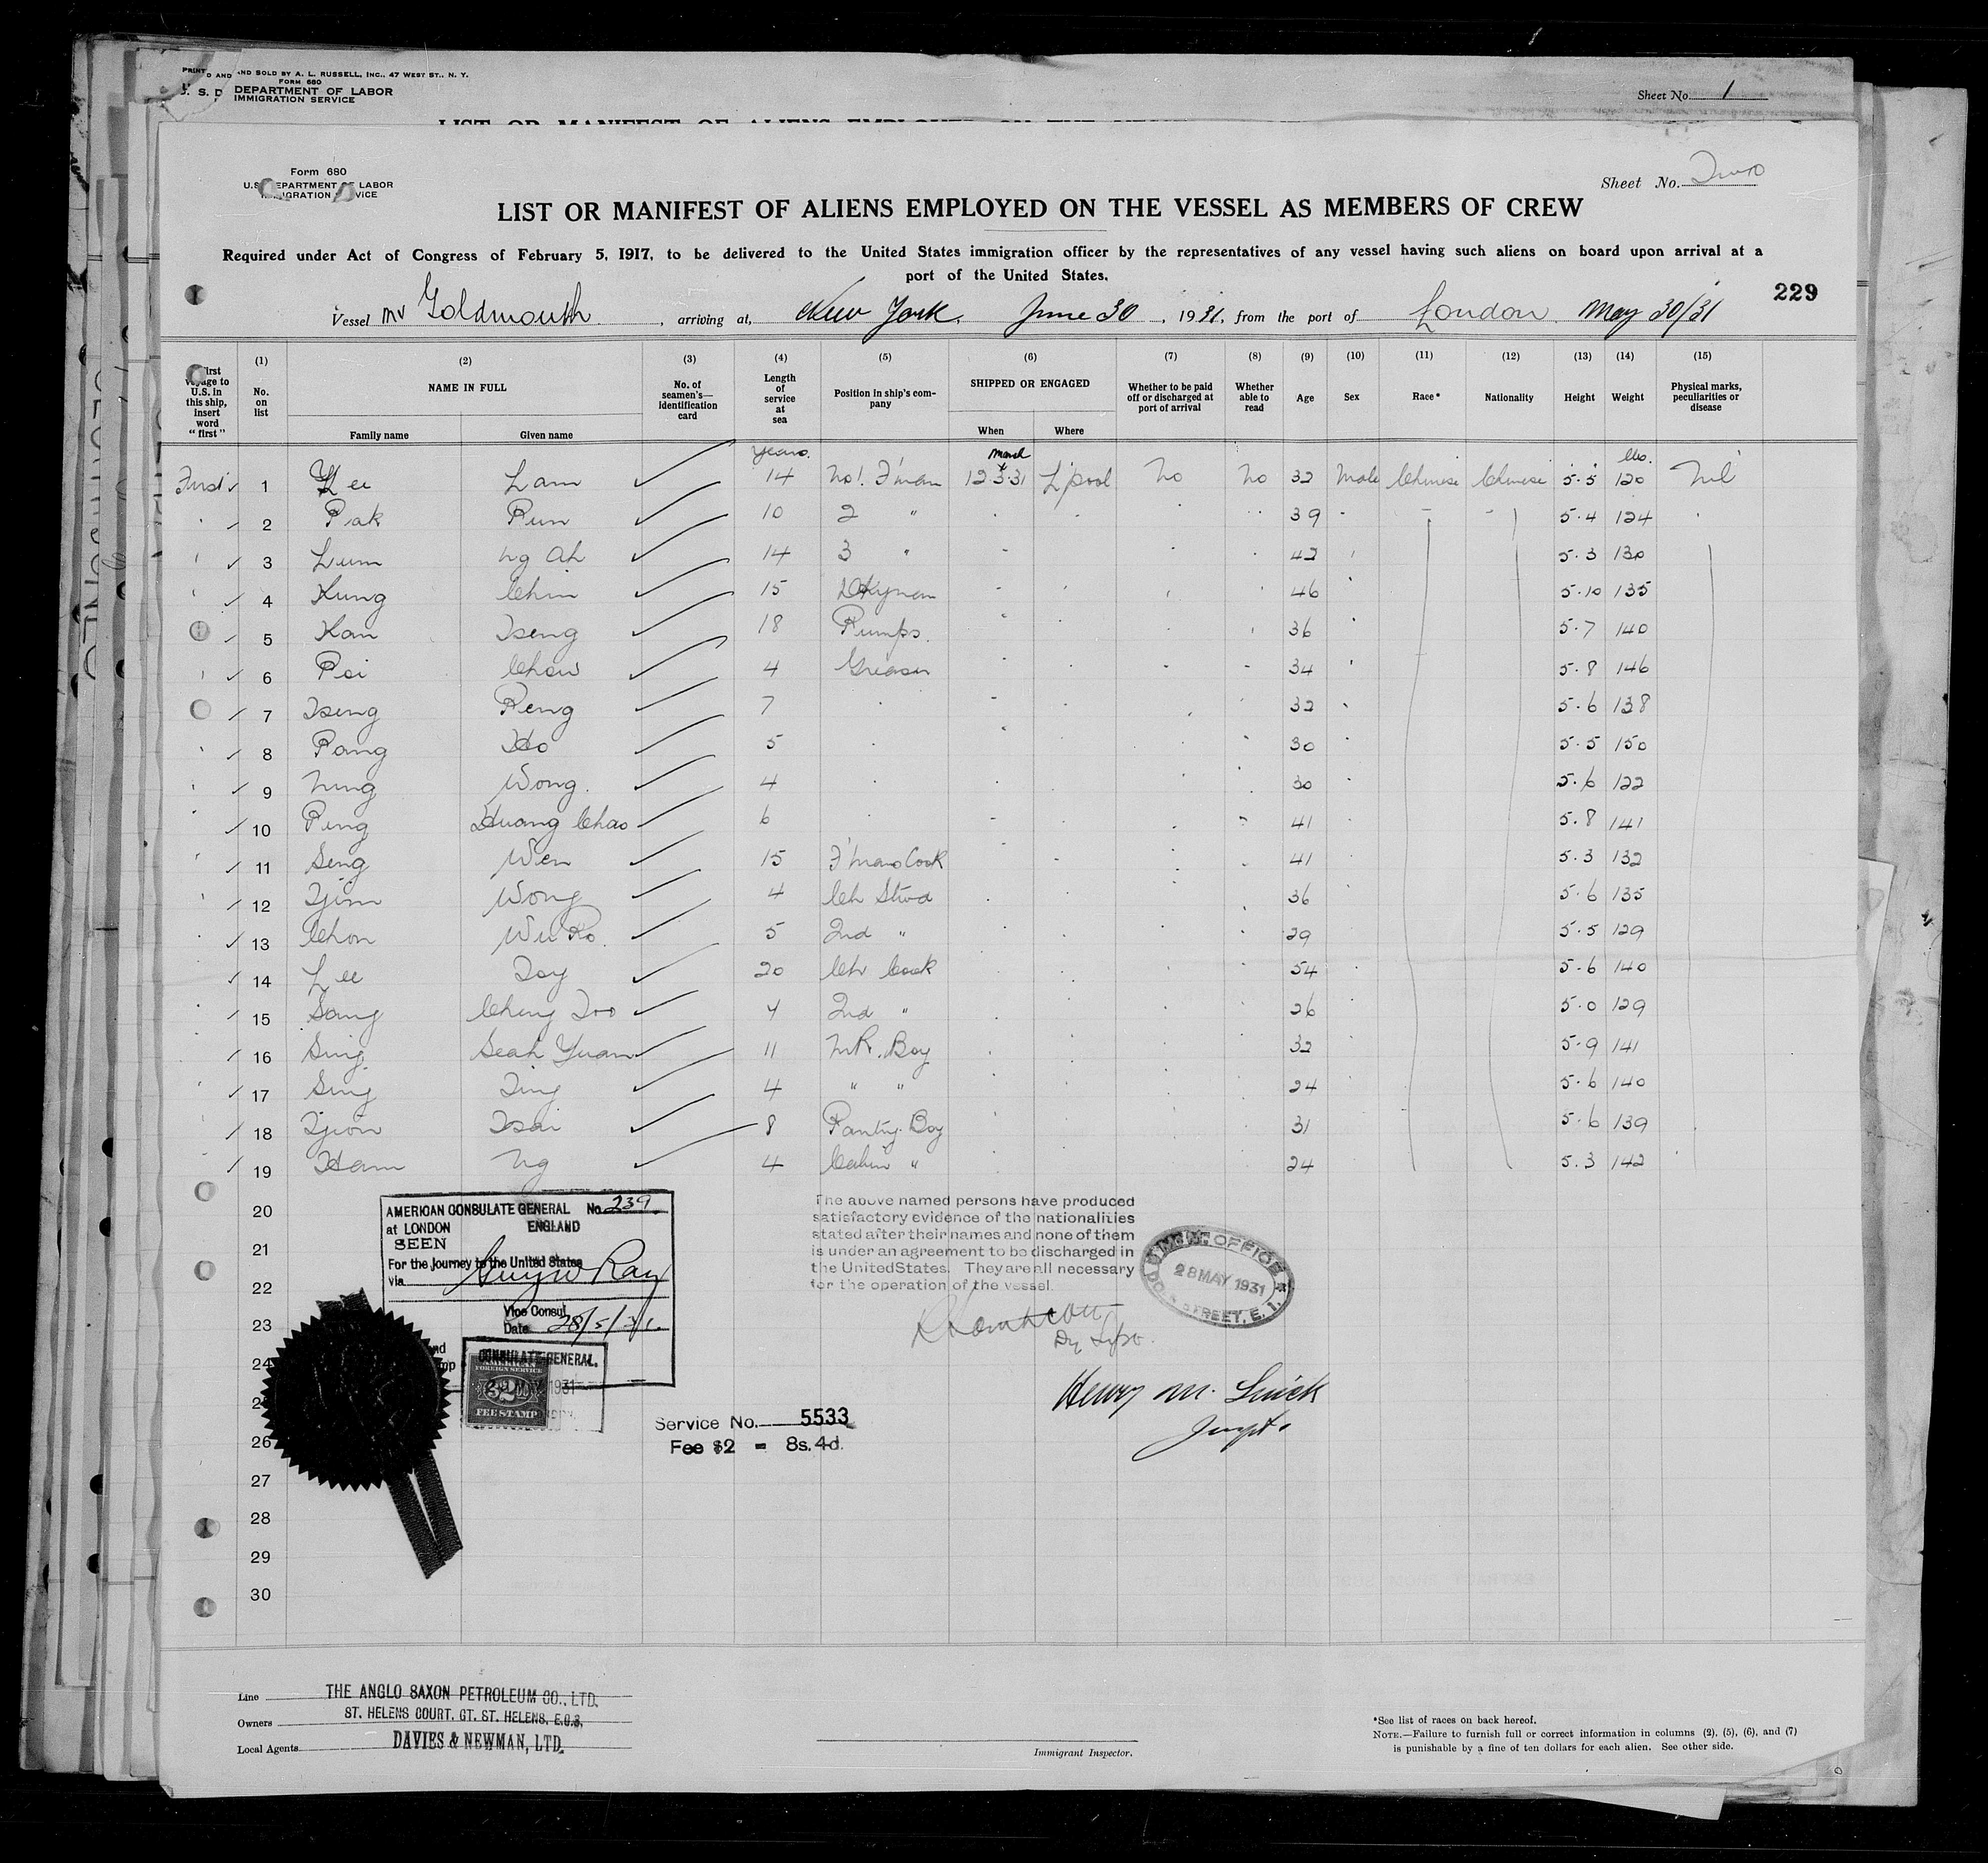 PRINTED AND SOLD BY A. L. RUSSELL, INC., 47 WEST ST., N. Y.
FORM 680
DEPARTMENT OF LABOR
IMMIGRATION SERVICE
Sheet No. 1
LIST OR MANIFEST OF ALIENS EMPLOYED ON THE
Form 680
U.S. DEPARTMENT OF LABOR
IMMIGRATION SERVICE
Sheet No. Two
LIST OR MANIFEST OF ALIENS EMPLOYED ON THE VESSEL AS MEMBERS OF CREW
Required under Act of Congress of February 5, 1917, to be delivered to the United States immigration officer by the representatives of any vessel having such aliens on board upon arrival at a
port of the United States.
229
Vessel MV Goldmouth, arriving at, New York, June 30, 1931, from the port of London. May 30/31
First voyage to U.S. in this ship, insert word "first"
(1) No. on list
(2) NAME IN FULL
Family name Given name
(3) No. of seamen's identification card
(4) Length of service at sea
(5) Position in ship's company
(6) SHIPPED OR ENGAGED
When Where
(7) Whether to be paid off or discharged at port of arrival
(8) Whether able to read
(9) Age
(10) Sex
(11) Race*
(12) Nationality
(13) Height
(14) Weight
(15) Physical marks, peculiarities or disease
years. March lbs.
First 1 Lee Lam 14 No 1. F'man 12.3.31 L'pool No No 32 Male Chinese Chinese 5.5 120 Nil
2 Pak Pun 10 2 " 39 5.4 124
3 Lum Ng Ah 14 3 " 42 5.3 130
4 Kung Chin 15 Dkyman 46 5.10 135
5 Kan Tseng 18 Pumps. 36 5.7 140
6 Poi Chow 4 Greaser 34 5.8 146
7 Tseng Peng 7 32 5.6 138
8 Pang Ho 5 30 5.5 150
9 Nung Wong. 4 30 5.6 122
10 Ping Huang Chao 6 41 5.8 141
11 Seng Wen 15 F'mans Cook 41 5.3 132
12 Tjim Wong 4 Ch Stwd 36 5.6 135
13 Chon Wu Ko. 5 2nd " 29 5.5 129
14 Lee Toy 20 Ch Cook 54 5.6 140
15 Sang Ching Too 4 2nd " 26 5.0 129
16 Sing Seah Yuan 11 MR. Boy 32 5.9 141
17 Sing Ting 4 " " 24 5.6 140
18 Tjion Tsai 8 Pantry Boy 31 5.6 139
19 Ham Ng 4 Cabin " 24 5.3 142
20
21
22
23
24
25
26
27
28
29
30
AMERICAN CONSULATE GENERAL No. 239.
at LONDON ENGLAND
SEEN
For the journey to the United States
via
Guy W Ray
Vice Consul
Date 28/5/31.
CONSULATE GENERAL.
AMERICAN
FOREIGN SERVICE
MAY 1931
FEE STAMP
Service No. 5533
Fee $2 = 8s. 4d.
The above named persons have produced
satisfactory evidence of the nationalities
stated after their names and none of them
is under an agreement to be discharged in
the United States. They are all necessary
for the operation of the vessel.
OFFICE
28 MAY 1931
STREET, E. 1.
Henry M.
The Line THE ANGLO SAXON PETROLEUM CO., LTD.
Owners ST. HELENS COURT, GT. ST. HELENS, E.C.3,
Local Agents DAVIES & NEWMAN, LTD.
Immigrant Inspector.
*See list of races on back hereof.
NOTE.—Failure to furnish full or correct information in columns (2), (5), (6), and (7)
is punishable by a fine of ten dollars for each alien. See other side.